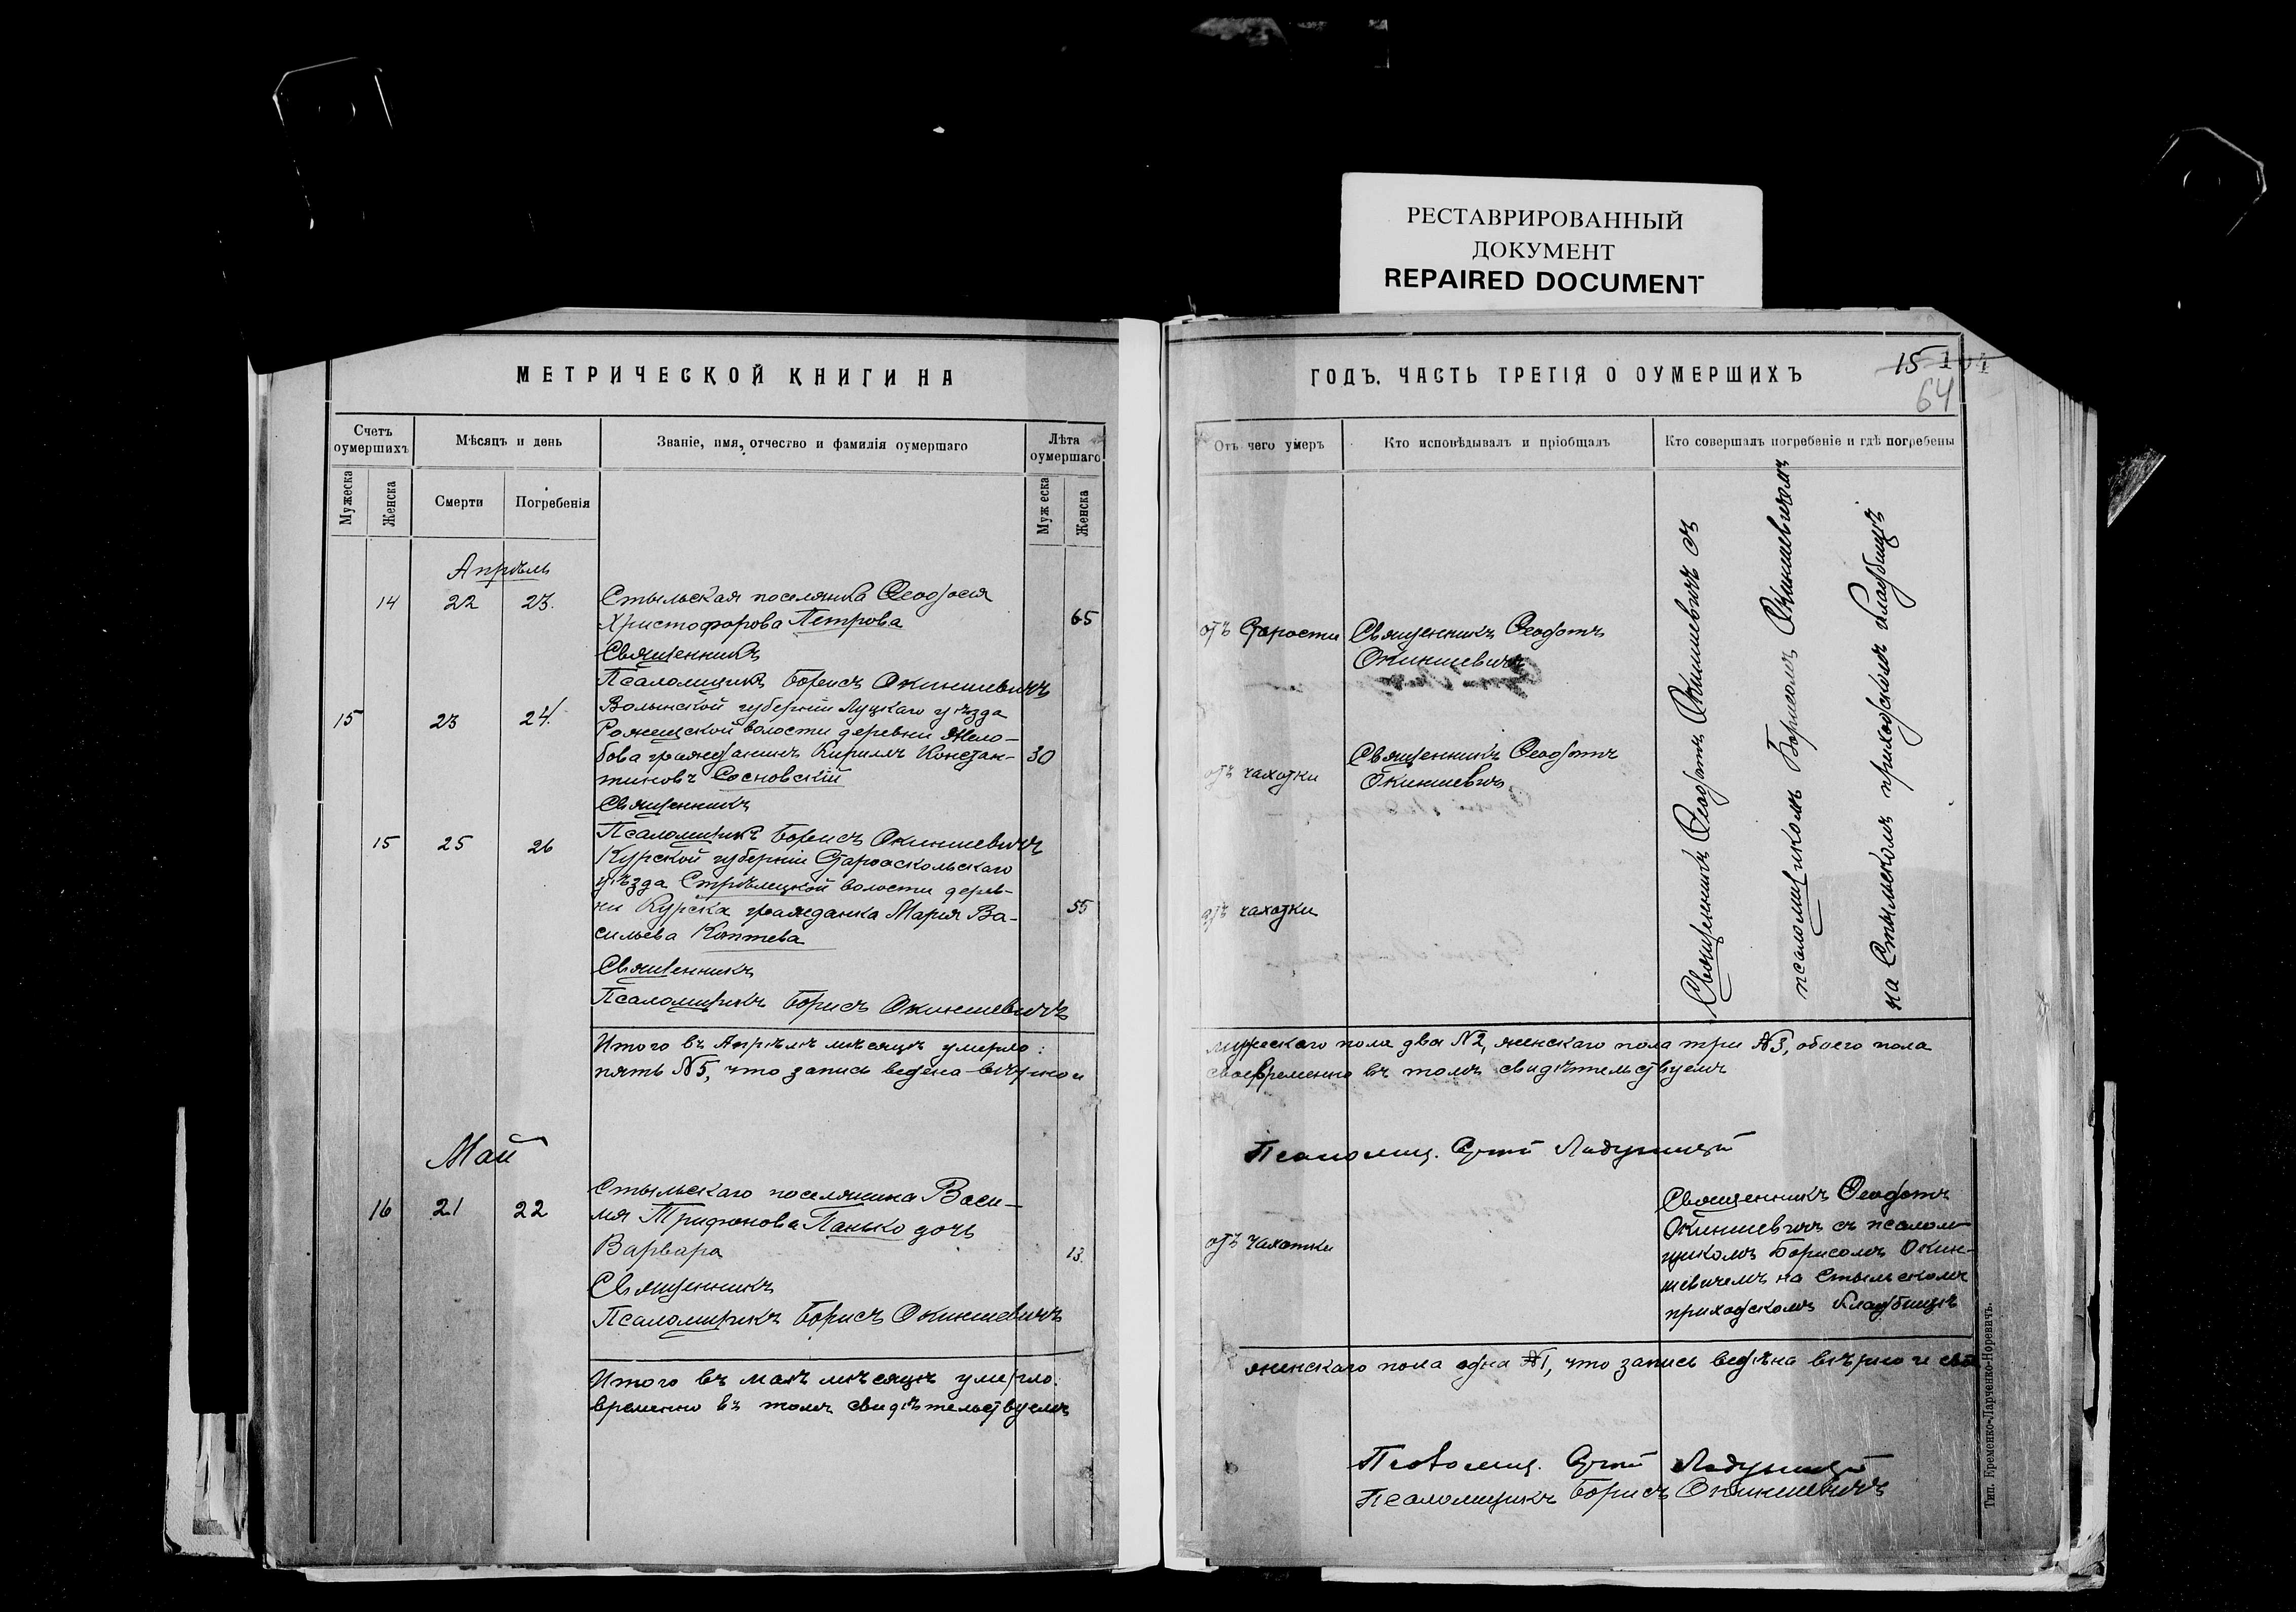 РЕСТАВРИРОВАННЫЙ
ДОКУМЕНТ
REPAIRED DOCUMENT
МЕТРИЧЕСКОЙ КНИГИ НА
Счетъ оумершихъ
Мѣсяцъ и день
Званіе, имя, отчество и фамилія оумершаго
Лѣта оумершаго
Мужеска
Женска
Смерти
Погребенія
Муж еска
Женска
Апрѣль
14 22 23. Стыльская поселянка Ѳеодосія
Христофорова Петрова 65
Священникъ
Псаломщикъ Борисъ Окиншевичъ
15 23 24. Волынской губерніи Луцкаго уѣзда
Рожищской волости деревни Жело-
бова гражданинъ Кириллъ Констан- 30
тиновъ Сосновскій
Священникъ
Псаломщикъ Борисъ Окиншевичъ
15 25 26 Курской губерніи Старооскольскаго
уѣзда Стрѣлецкой волости дерев-
ни Курска гражданка Марія Ва- 55
сильева Коптева
Священникъ
Псаломщикъ Борисъ Окиншевичъ
Итого въ Апрѣлѣ мѣсяцѣ умерло:
пять №5, что запись ведена вѣрно и
Май
16 21 22 Стыльскаго поселянина Васи-
лія Трифонова Панько дочь
Варвара 13.
Священникъ
Псаломщикъ Борисъ Окиншевичъ
Итого въ маѣ мѣсяцѣ умерло:
временно въ томъ свидѣтельствуемъ
ГОДЪ. ЧАСТЬ ТРЕТІЯ О ОУМЕРШИХЪ
15 104
64
Отъ чего умеръ
Кто исповѣдывалъ и пріобщалъ
Кто совершалъ погребеніе и гдѣ погребены
отъ старости Священникъ Ѳеодотъ
Окиншевичъ
отъ чахотки Священникъ Ѳеодотъ
Окиншевичъ
отъ чахотки
Священникъ Ѳеодотъ Окиншевичъ съ
псаломщикомъ Борисомъ Окиншевичемъ
на Стыльскомъ приходскомъ кладбищѣ
мужескаго пола два №2, женскаго пола три №3, обоего пола
своевременно въ томъ свидѣтельствуемъ
Псаломщ.
отъ чахотки
Священникъ Ѳеодотъ
Окиншевичъ съ псалом-
щикомъ Борисомъ Окин-
шевичемъ на Стыльскомъ
приходскомъ кладбищѣ
женскаго пола одна №1, что запись ведѣна вѣрно и сво
Псаломщ.
Псаломщикъ Борисъ Окиншевичъ
Тип. Кременко-Ларченко-Норевичъ.